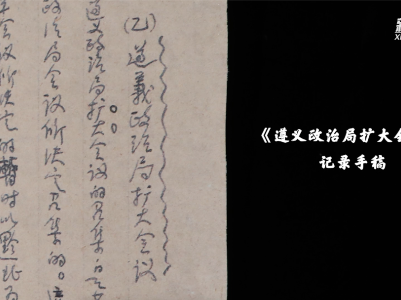 (乙)遵義政治局扩大会议
遵义政治局扩大会议的召集是
政治局会议所决定召集的。
会议所决定的暂时以黔北为
《遵义政治局扩大会
记录手稿